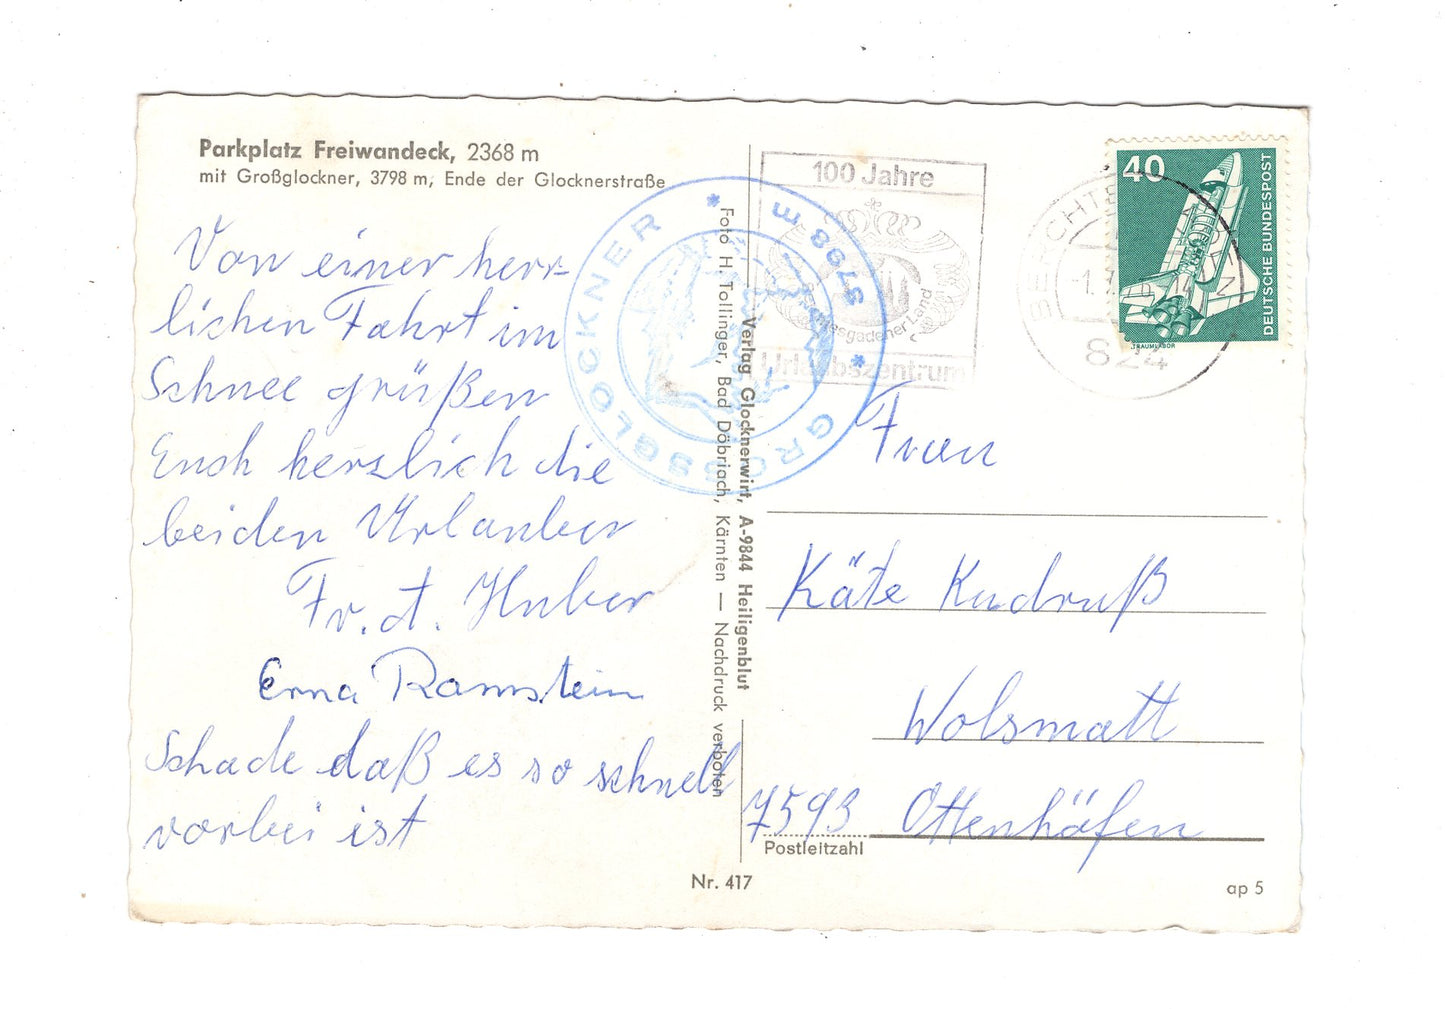 Parkplatz Freiwandeck, 2368 m
mit Großglockner, 3798 m, Ende der Glocknerstraße
Von einer herr-
lichen Fahrt im
Schnee grüßen
Euch herzlich die
beiden Urlauber
Fr. A. Huber
Erna Ramstein
Schade daß es so schnell
vorbei ist
GROSSGLOCKNER * 3798 M *
Foto H. Tollinger, Bad Döbriach, Kärnten — Nachdruck verboten
Verlag Glocknerwirt, A-9844 Heiligenblut
100 Jahre
Berchtesgadener Land
Urlaubszentrum
BERCHTESGADEN
824
40
DEUTSCHE BUNDESPOST
Frau
Käte Kudruß
Wolsmatt
7593 Ottenhöfen
Postleitzahl
Nr. 417
ap 5